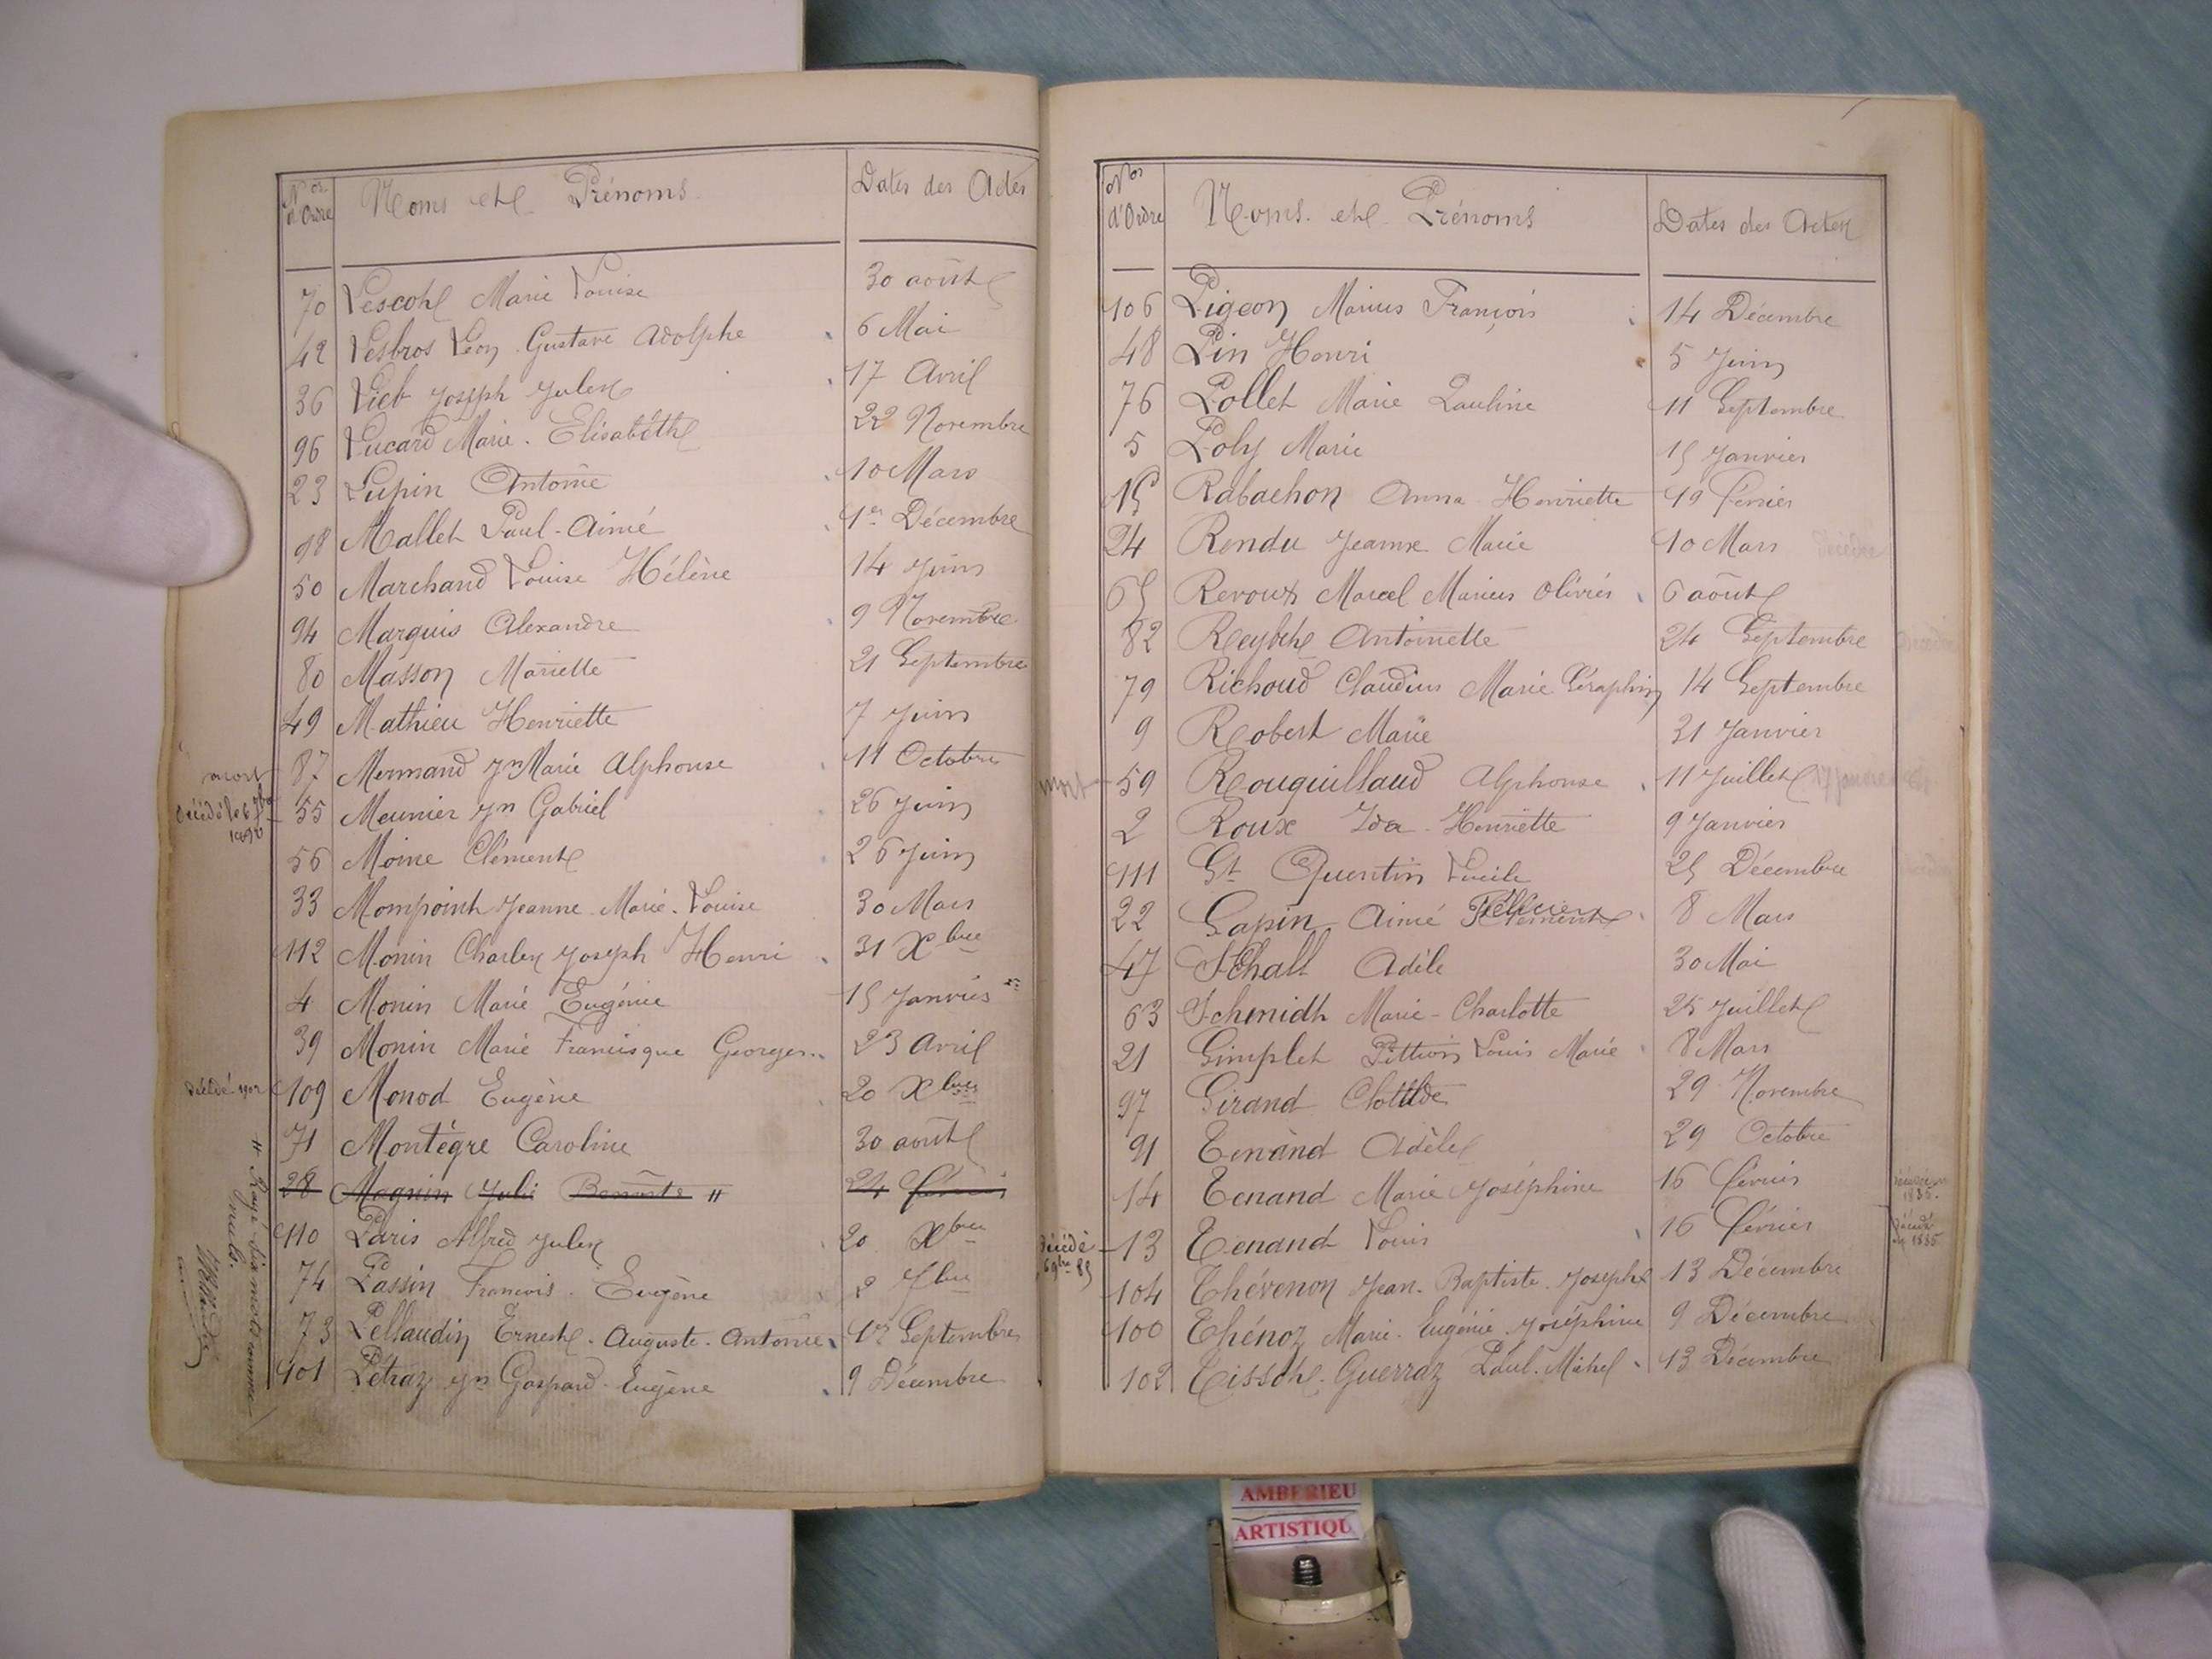 Nos d'Ordre Noms et Prénoms Dates des Actes
70 Lescot Marie Louise 30 août
42 Lesbros Léon Gustave Adolphe 6 Mai
36 Lieb Joseph Jules 17 Avril
96 Lucard Marie Elisabeth 22 Novembre
23 Lupin Antoine 10 Mars
98 Mallet Paul-Aimé 1er Décembre
50 Marchand Louise Hélène 14 Juin
94 Marquis Alexandre 9 Novembre
80 Masson Mariette 21 Septembre
49 Mathieu Henriette 7 Juin
mort 87 Mermand Jn Marie Alphonse 11 Octobre
Décédé le 6 55 Meunier Jn Gabriel 26 Juin
56 Moine Clément 26 Juin
33 Mompoint Jeanne Marie Louise 30 Mars
112 Monin Charles Joseph Henri 31 Xbre
4 Monin Marie Eugénie 15 Janvier
39 Monin Marie Francisque Georges 23 Avril
décédé 109 Monod Eugène 20 Xbre
71 Montégre Caroline 30 août
28 Magnin Julie Benoîte " 24 février
110 Paris Alfred Jules 20 Xbre
74 Passin François Eugène 2 7bre
73 Pellaudin Ernest Auguste Antoine 1er Septembre
101 Pétraz Jn Gaspard Eugène 9 Décembre
" Rayé six mots comme nuls.
Nos d'Ordre Noms et Prénoms Dates des Actes
106 Pigeon Marius François 14 Décembre
48 Pin Henri 5 Juin
76 Pollet Marie Pauline 11 Septembre
5 Poly Marie 15 Janvier
15 Rabachon Anna Henriette 19 février
24 Rendu Jeanne Marie 10 Mars
65 Revoux Marcel Marius Olivier 6 août
82 Reybet Antoinette 24 Septembre
79 Richoud Claudius Marie Séraphin 14 Septembre
9 Robert Marie 31 Janvier
mort 59 Rouquillaud Alphonse 11 Juillet
2 Roux Ida Henriette 9 Janvier
111 St Quentin Lucile 25 Décembre
22 Sapin Aimé 8 Mars
47 Schall Adèle 30 Mai
63 Schmidt Marie-Charlotte 25 Juillet
21 Simplet Louis Marie 8 Mars
97 Sirand Clotilde 29 Novembre
91 Tenand Adèle 29 Octobre
14 Tenand Marie Joséphine 16 février
décédé 13 Tenand Louis 16 février
104 Thévenon Jean Baptiste Joseph 13 Décembre
100 Thénoz Marie Eugénie Joséphine 9 Décembre
102 Tissot-Guerraz Paul Michel 13 Décembre
AMBERIEU
ARTISTIQU